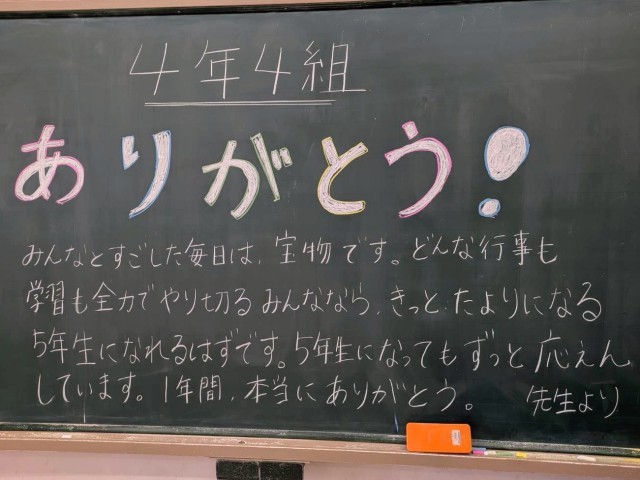 4年4組
ありがとう!
みんなとすごした毎日は、宝物です。どんな行事も
学習も全力でやり切るみんななら、きっと、たよりになる
5年生になれるはずです。5年生になってもずっと応えん
しています。1年間、本当にありがとう。 先生より